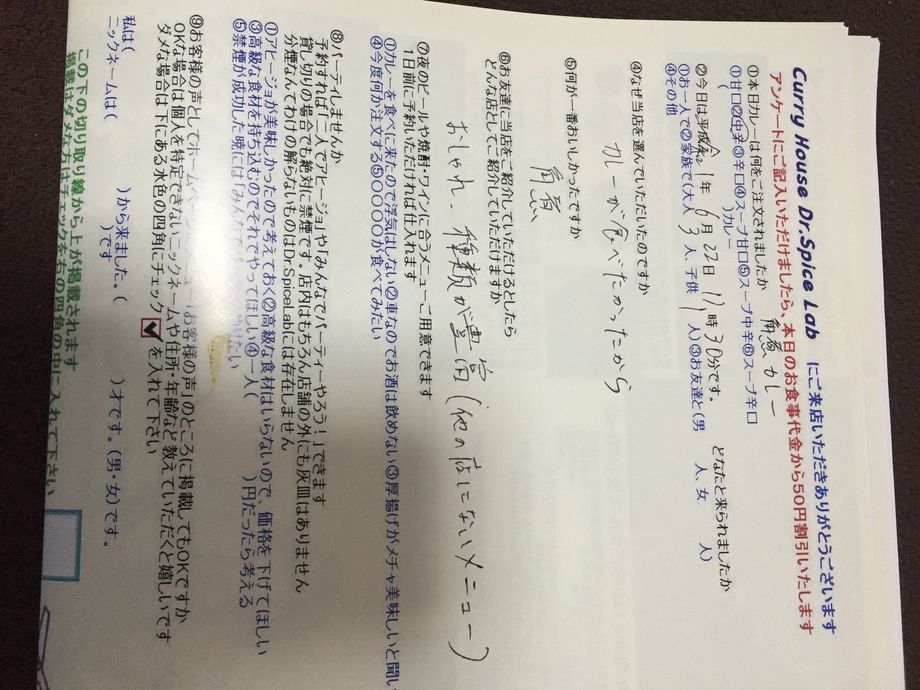 Curry House Dr.Spice Lab にご来店いただきありがとうございます
アンケートにご記入いただけましたら、本日のお食事代金から50円割引いたします
①本日カレーは何をご注文されましたか
①甘口②中辛③辛口④スープ甘口⑤スープ中辛⑥スープ辛口
( 角煮カレー )カレー
②今日は平成令和1年6月22日17時30分です。 どなたと来られましたか
①お一人で②家族で(大人3人、子供1人)③お友達と(男 人、女 人)
④その他
④なぜ当店を選んでいただいたのですか
カレーが食べたかったから
⑤何が一番おいしかったですか
角煮
⑥お友達に当店をご紹介していただけるとしたら
どんな店としてご紹介していただけますか
おしゃれ、種類が豊富(他の店にないメニュー)
⑦夜のビールや焼酎・ワインに合うメニューご用意できます
1日前に予約いただければ仕入れます
①カレーを食べに来たので浮気はしない②車なのでお酒は飲めない③厚揚げがメチャ美味しいと聞い
④今度何か注文する⑤〇〇〇〇が食べてみたい
⑧パーティしませんか
予約すれば「二人でアヒージョ」や「みんなでパーティーやろう!」できます
貸し切りの場合でも絶対に禁煙です。店内はもちろん店舗の外にも灰皿はありません
分煙なんてわけの解らないものはDr.SpiceLabには存在しません
①アヒージョが美味しかったので考えておく②高級な食材はいらないので、価格を下げてほしい
③高級な食材を持ち込むのでそれでやってほしい④一人( )円だったら考える
⑤禁煙が成功した暁には「みんな
⑨お客様の声としてホームページ 「お客様の声」のところに掲載してもOKですか
OKな場合は個人を特定できないニックネームや住所・年齢など教えていただくと嬉しいです
ダメな場合は下にある水色の四角にチェック☑を入れて下さい
私は( )から来ました。( )才です。(男・女)です。
ニックネームは( )です
この下の切り取り線から上が掲載されます
掲載はダメな方はチェックを右の四角の中に入れて下さい